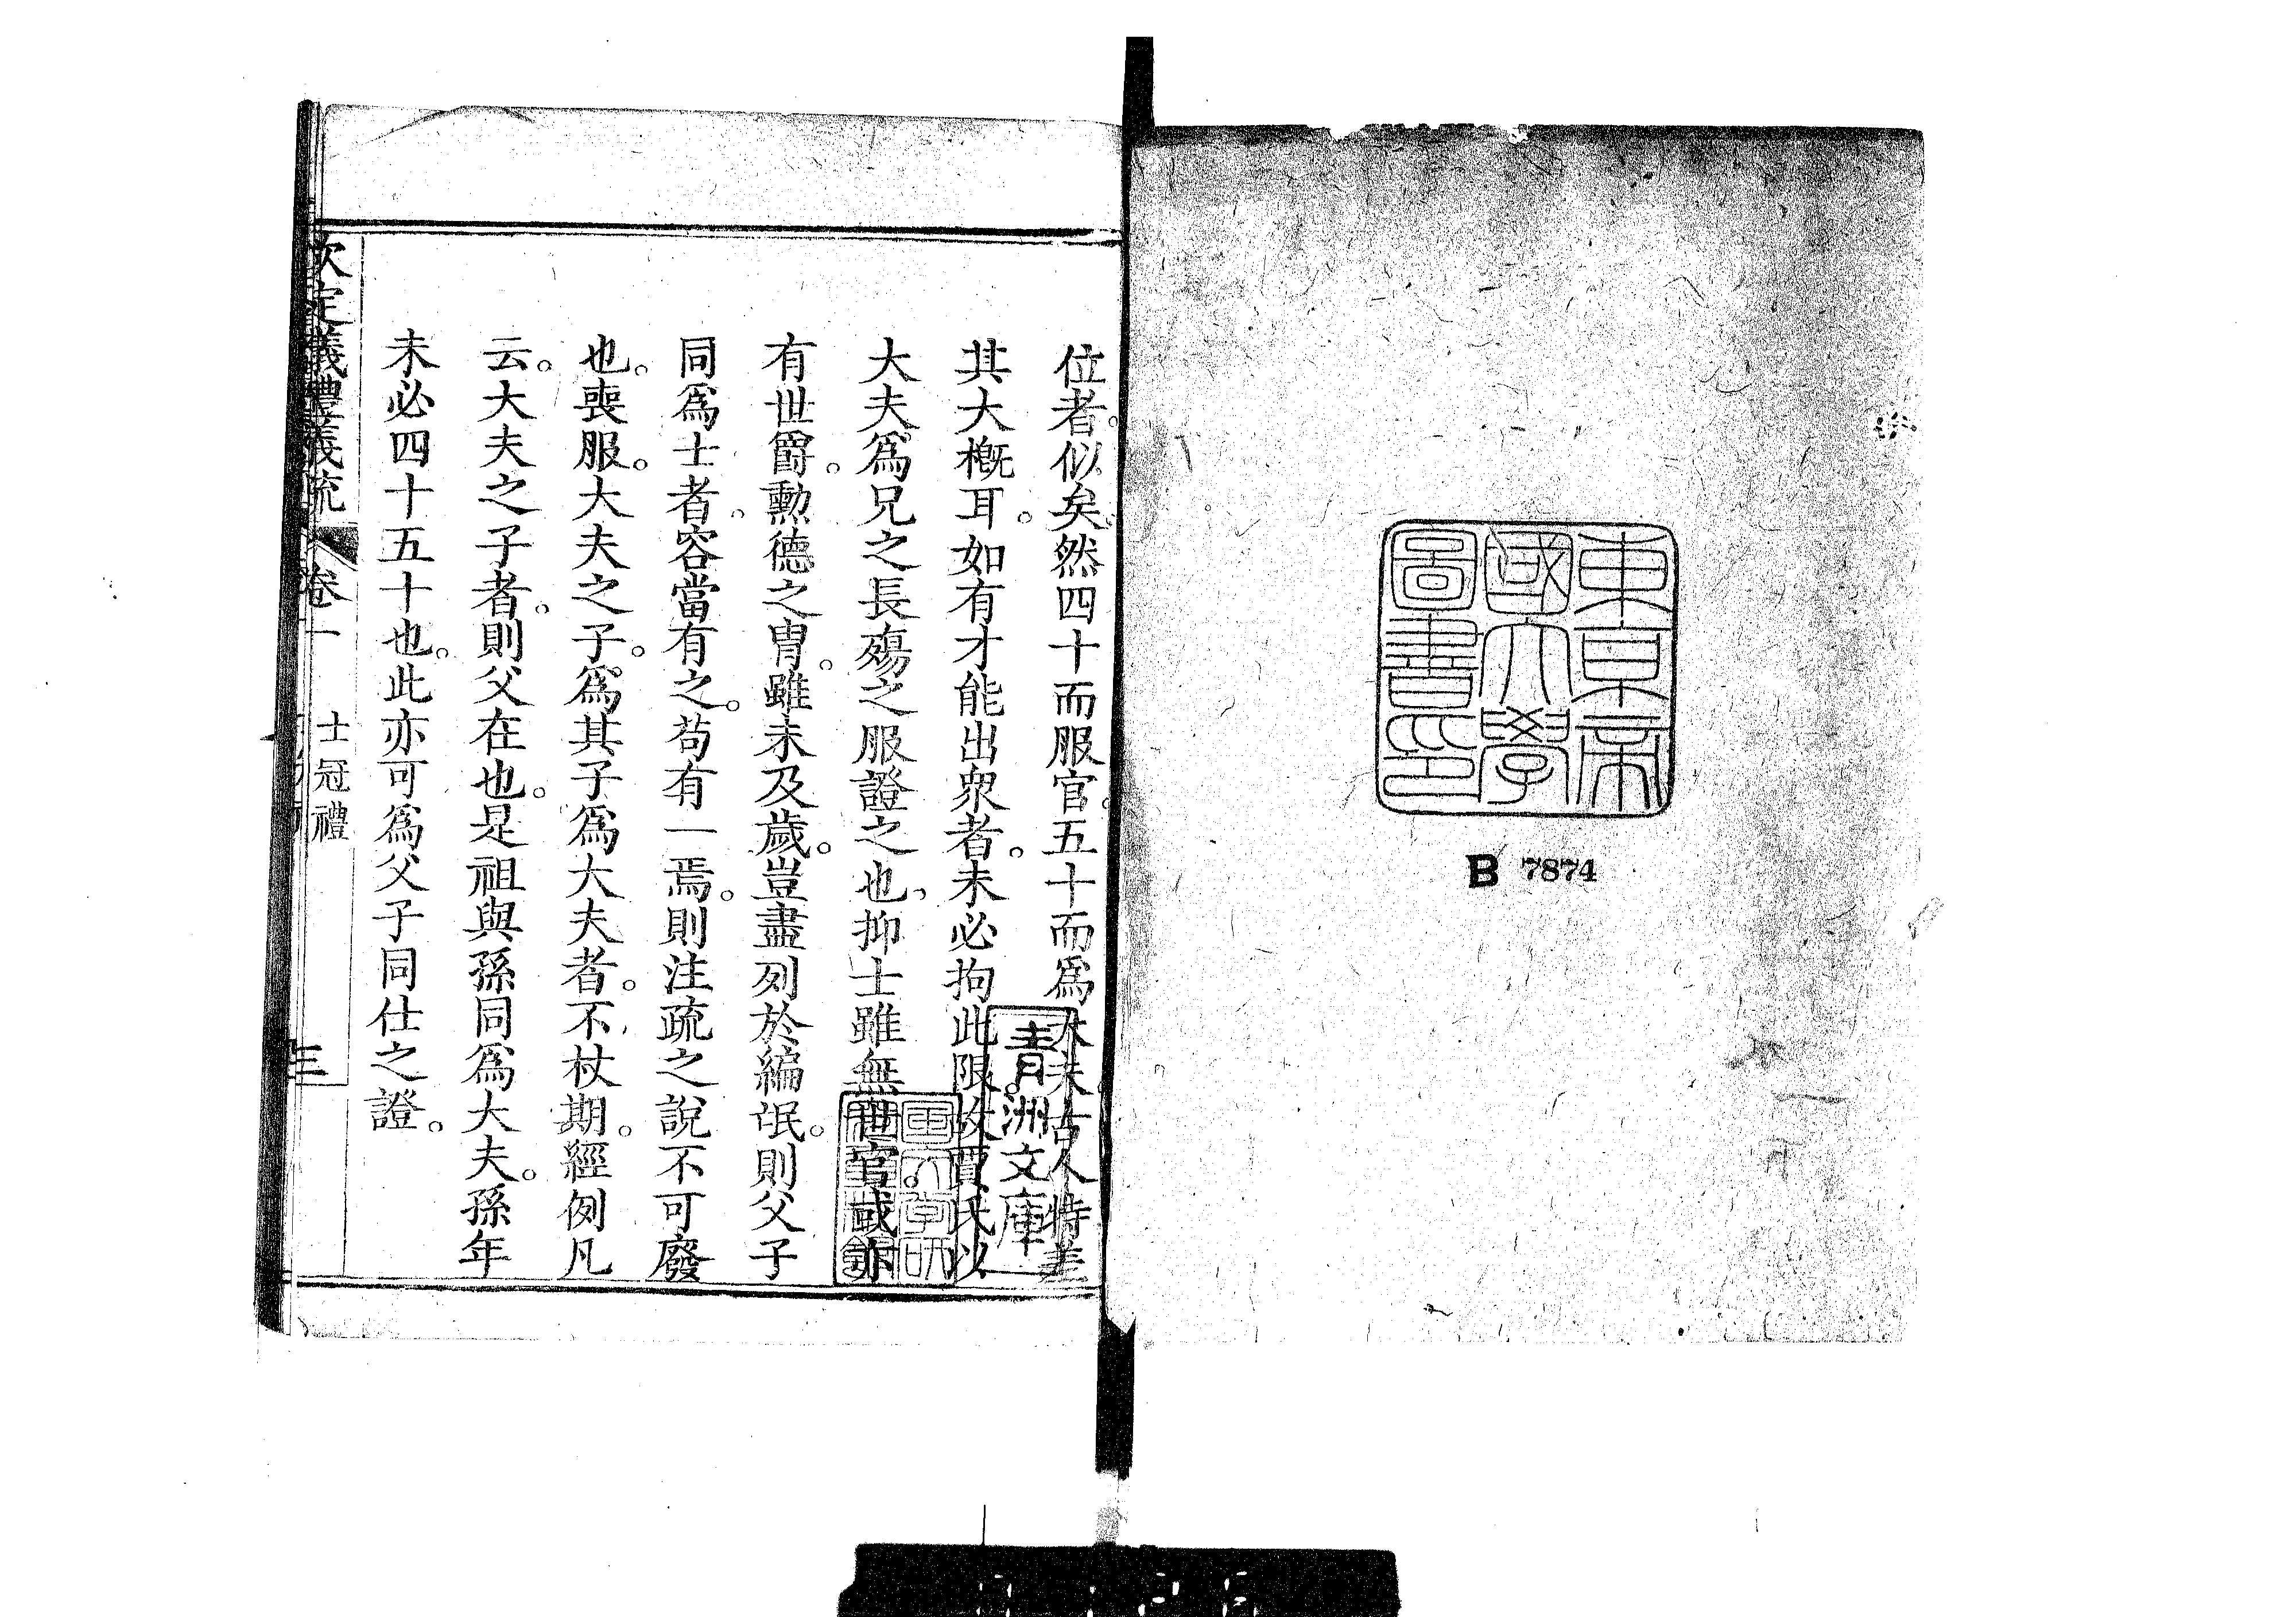 東京帝
國大學
圖書印
B 7874
位者。似矣。然四十而服官。五十而爲大夫。古人特差
其大槪耳。如有才能出衆者。未必拘此限。攷賈氏以
大夫爲兄之長殤之服證之也。抑士雖無世官。或亦
有世爵。勲德之冑。雖未及歲。豈盡列於編氓。則父子
同爲士者。容當有之。苟有一焉。則注疏之說不可廢
也。喪服。大夫之子。爲其子爲大夫者。不杖期。經例凡
云。大夫之子者。則父在也。是祖與孫同爲大夫。孫年
未必四十五十也。此亦可爲父子同仕之證。
青洲文庫
欽定儀禮義疏 卷一 士冠禮 三